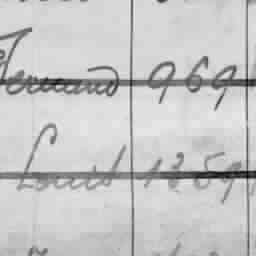 Fernand 969
Louis 1359